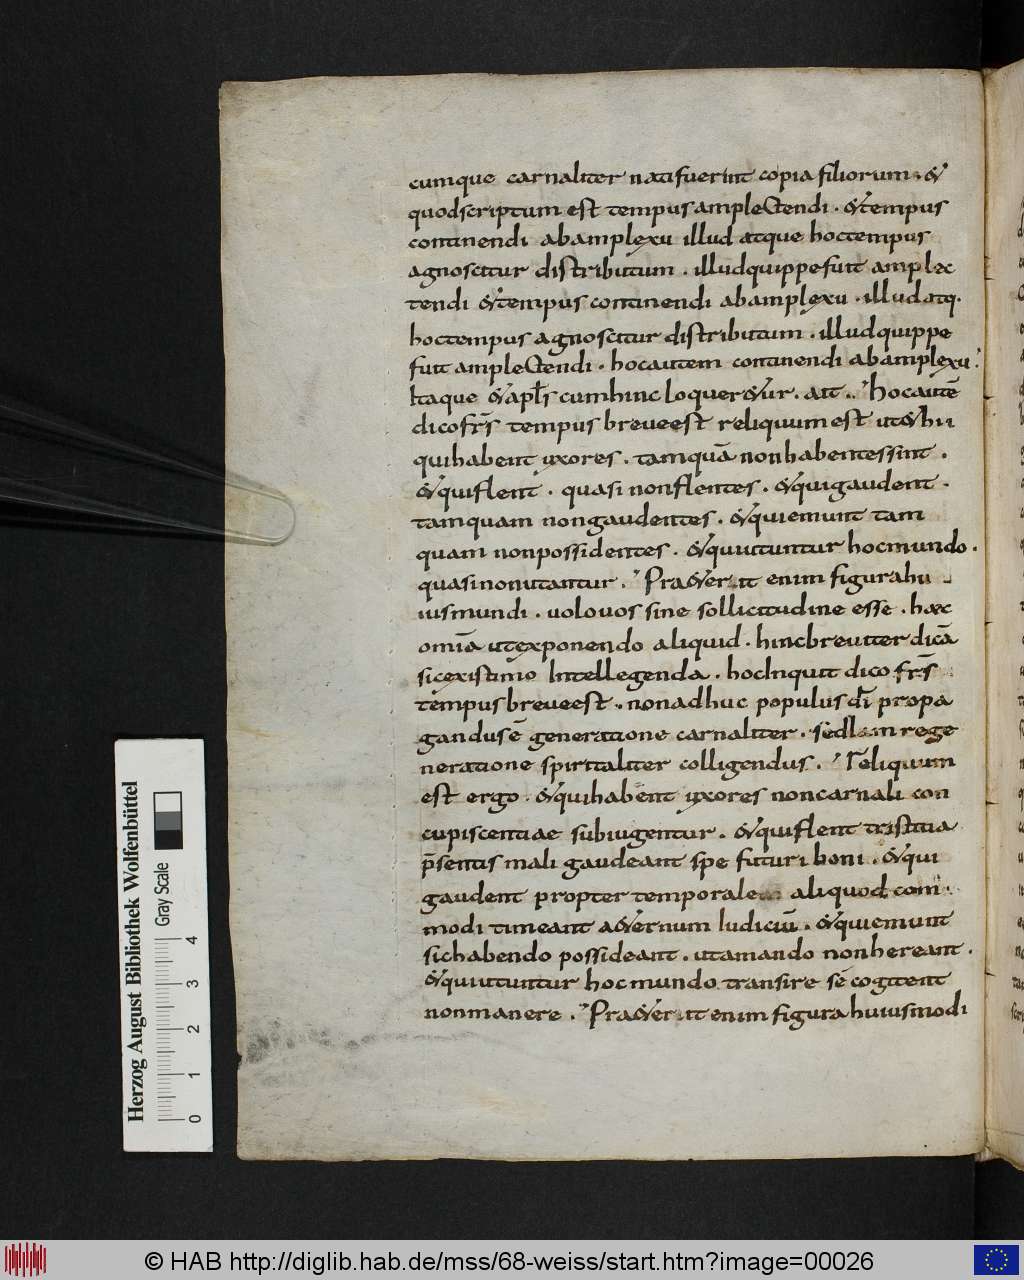 cumque carnaliter nati fuerint copia filiorum · &
quod scriptum est tempus amplectendi · & tempus
continendi ab amplexu illud atque hoc tempus
agnoscitur distributum · illud quippe fuit amplec
tendi & tempus continendi ab amplexu · illud atq·
hoc tempus agnoscitur distributum · illud quippe
fuit amplectendi · hoc autem continendi ab amplexu ·
Itaque & apl̄s cum hinc loquer&ur · ait · hoc autē
dico fr̄s tempus breve est reliquum est ut & hii
qui habent uxores · tamquā non habentes sint ·
& qui flent · quasi non flentes · & qui gaudent ·
tamquam non gaudentes · & qui emunt tam
quam non possidentes · & qui utuntur hoc mundo ·
quasi non utantur · Pra&erit enim figura hu
ius mundi · uolo uos sine sollicitudine esse · haec
omīa ut exponendo aliquid · hinc breuiter dicā
sic existimo Intellegenda · hoc Inquit dico fr̄s
tempus breve est · non adhuc populus dī propa
gandus ē generatione carnaliter · sed Iam rege
neratione spiritaliter colligendus · Reliquum
est ergo · & qui habent uxores non carnali con
cupiscentiae subiugentur · & qui flent tristitia
p̄sentis mali gaudeant spe futuri boni · & qui
gaudent propter temporale aliquod com
modi timeant a&ernum Iudiciū · & qui emunt
sic habendo possideant · ut amando non hereant ·
& qui utuntur hoc mundo transire sē cogitent
non manere · Pra&erit enim figura huius modi
Herzog August Bibliothek Wolfenbüttel
Gray Scale
0 1 2 3 4
© HAB http://diglib.hab.de/mss/68-weiss/start.htm?image=00026